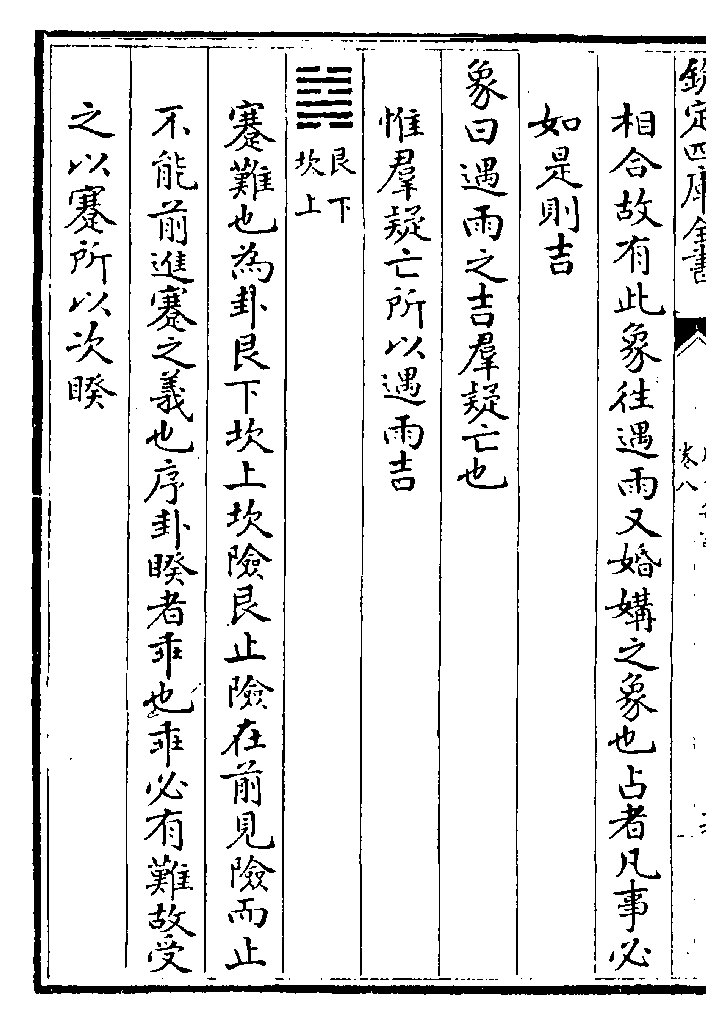 欽定四庫全書
卷八
相合故有此象往遇雨又婚媾之象也占者凡事必
如是則吉
象曰遇雨之吉羣疑亡也
惟羣疑亡所以遇雨吉
艮下
坎上
蹇難也為卦艮下坎上坎險艮止險在前見險而止
不能前進蹇之義也序卦睽者乖也乖必有難故受
之以蹇所以次睽